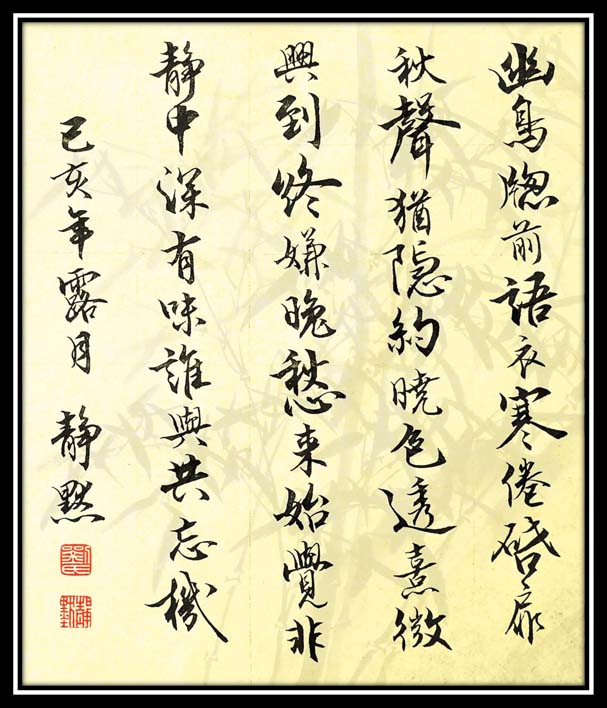 幽鳥牕前語衣寒倦啓扉
秋聲猶隱約曉色透熹微
興到終嫌晚愁来始覺非
静中深有味誰與共忘機
己亥年露月 静默